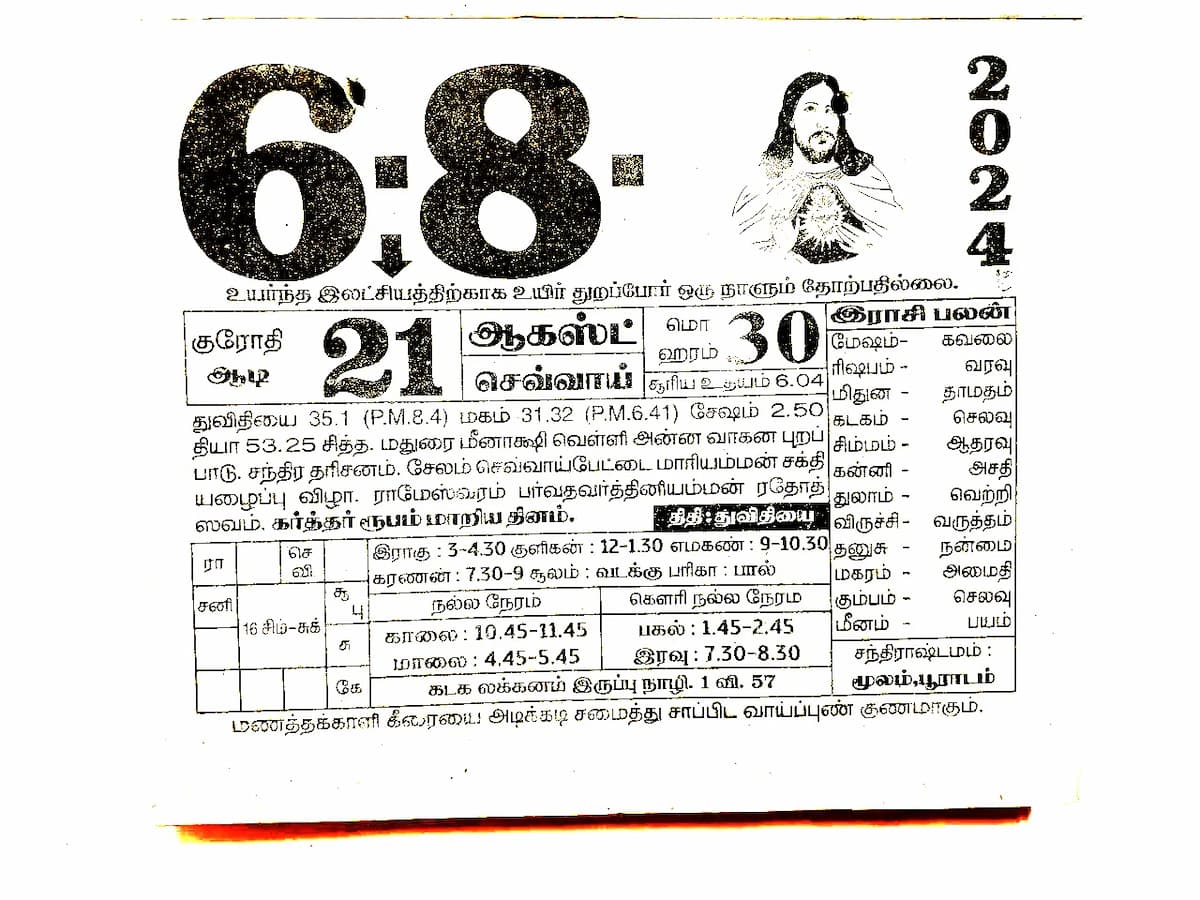 6.8.
2024
உயர்ந்த இலட்சியத்திற்காக உயிர் துறப்போர் ஒரு நாளும் தோற்பதில்லை.
குரோதி
ஆடி
21
ஆகஸ்ட்
செவ்வாய்
மொ
ஹரம்
30
சூரிய உதயம் 6.04
துவிதியை 35.1 (P.M.8.4) மகம் 31.32 (P.M.6.41) சேஷம் 2.50
தியா 53.25 சித்த. மதுரை மீனாக்ஷி வெள்ளி அன்ன வாகன புறப்
பாடு. சந்திர தரிசனம். சேலம் செவ்வாய்பேட்டை மாரியம்மன் சக்தி
யழைப்பு விழா. ராமேஸ்வரம் பர்வதவர்த்தினியம்மன் ரதோத்
ஸவம். கர்த்தர் ரூபம் மாறிய தினம்.
திதி: துவிதியை
ரா
செ
வி
சனி
16 சிம்-சுக்
சூ
பு
சு
கே
இராகு : 3-4.30 குளிகன் : 12-1.30 எமகண் : 9-10.30
கரணன் : 7.30-9 சூலம் : வடக்கு பரிகா : பால்
நல்ல நேரம்
கௌரி நல்ல நேரம
காலை : 10.45-11.45
பகல் : 1.45-2.45
மாலை : 4.45-5.45
இரவு : 7.30-8.30
கடக லக்கனம் இருப்பு நாழி. 1 வி. 57
இராசி பலன்
மேஷம்- கவலை
ரிஷபம் - வரவு
மிதுன - தாமதம்
கடகம் - செலவு
சிம்மம் - ஆதரவு
கன்னி - அசதி
துலாம் - வெற்றி
விருச்சி- வருத்தம்
தனுசு - நன்மை
மகரம் - அமைதி
கும்பம் - செலவு
மீனம் - பயம்
சந்திராஷ்டமம் :
மூலம்,பூராடம்
மணத்தக்காளி கீரையை அடிக்கடி சமைத்து சாப்பிட வாய்ப்புண் குணமாகும்.